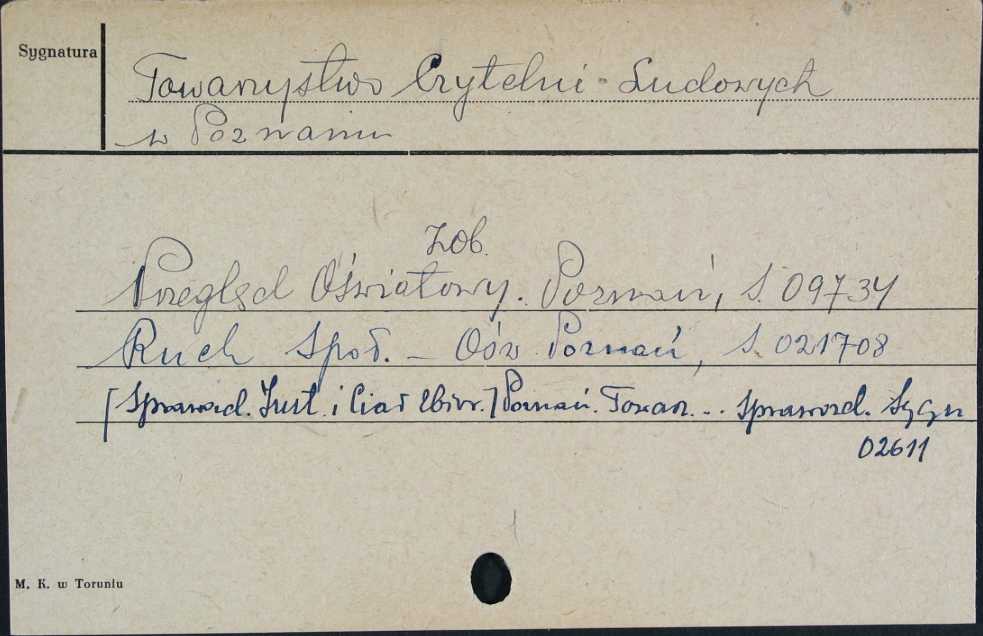 Sygnatura
Towarzystwo Czytelni Ludowych
w Poznaniu
Zob.
Przegląd Oświatowy. Poznań, S. 09734
Ruch Społ. – Ośw Poznań, S. 021708
[Sprawozd. Inst. i Ciał Zbior.] Poznań. Towarz... Sprawozd. Sygn
02611
M. K. w Toruniu